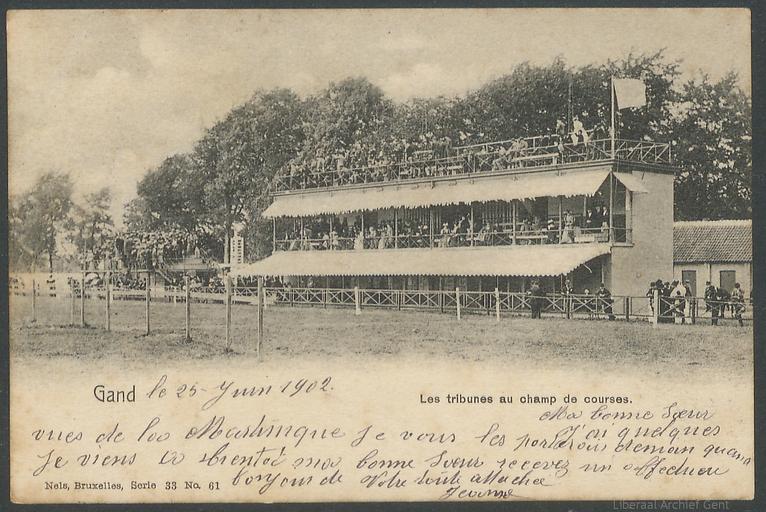 Gand le 25 Juin 1902.
Les tribunes au champ de courses.
Ma bonne Sœur
J'ai quelques
vues de la Martinique je vous les porterais demain quand
Je viens a bientôt ma bonne Sœur recevez un affectueu
bonjour de Votre toute attachée
Jeanne
Nels, Bruxelles, Serie 33 No. 61
Liberaal Archief Gent